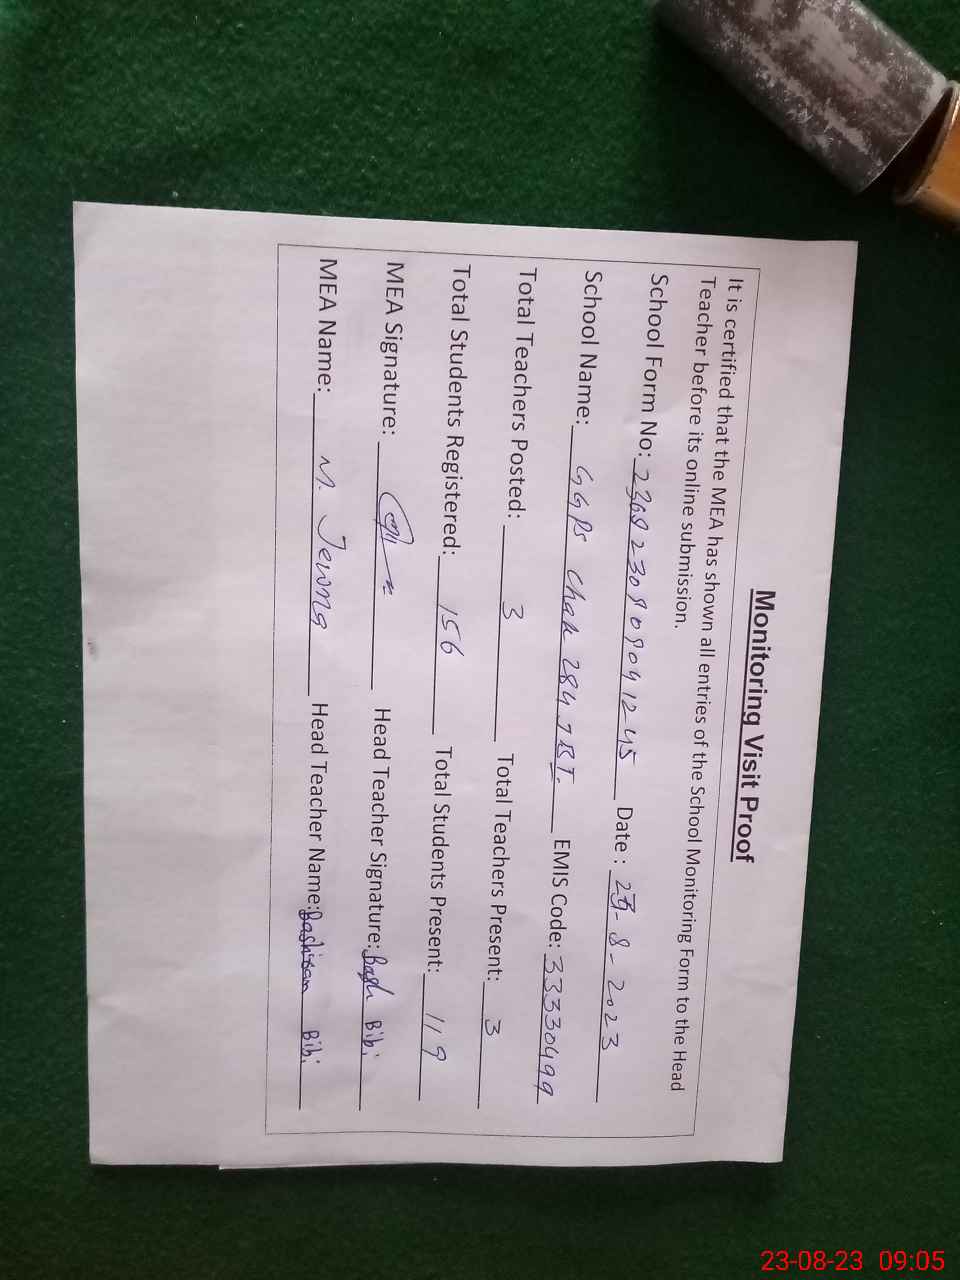 Monitoring Visit Proof
It is certified that the MEA has shown all entries of the School Monitoring Form to the Head
Teacher before its online submission.
School Form No: Date : 8-2023
School Name: GGPS Chak 284 JBT. EMIS Code: 33330499
Total Teachers Posted: 3 Total Teachers Present: 3
Total Students Registered: 156 Total Students Present: 119
MEA Signature: Head Teacher Signature: Bibi
MEA Name: M. Head Teacher Name: Bibi
23-08-23 09:05